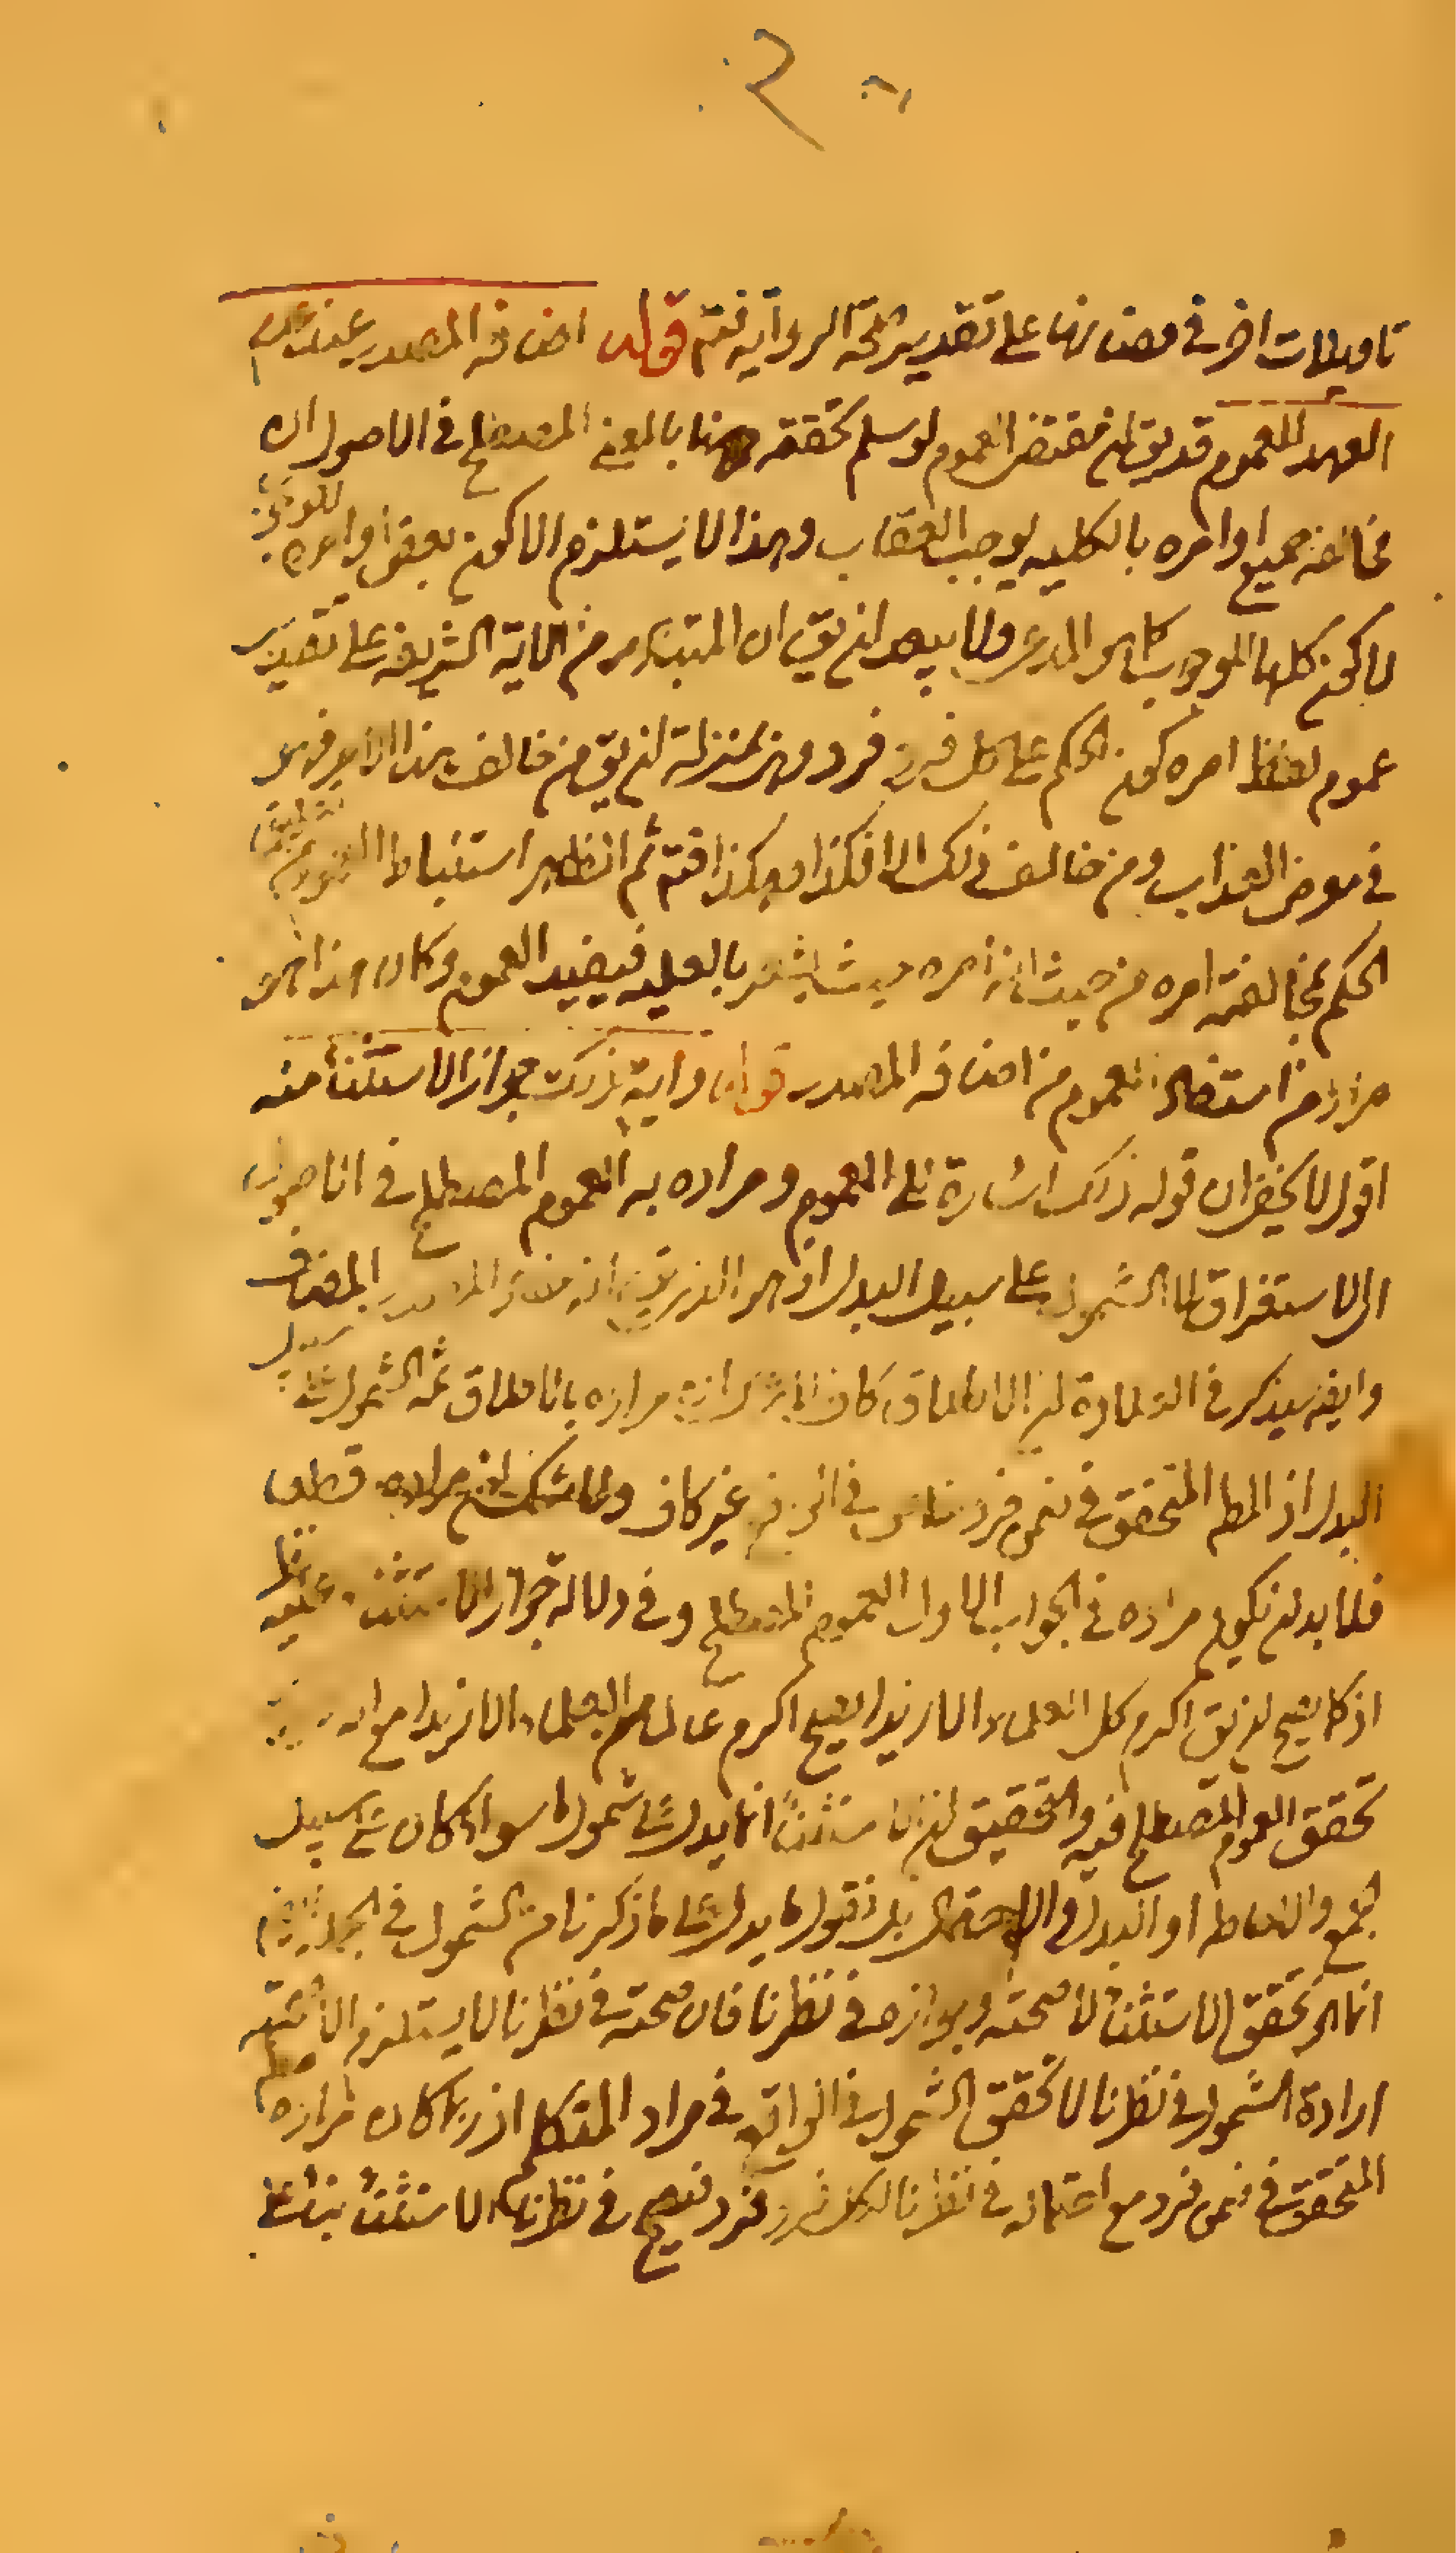 تاويلات اخر في مصنفاتها على تقدير صحة الرواية فتم قوله اضافة المصدر عند عدم
العهد للعموم قد يق ان مقتضى العموم لو سلم تحققه ههنا بالمعنى المصطلح في الاصول ان
مخالفة جميع اوامره بالكلية يوجب العقاب وهذا لا يستلزم الا كون بعض اوامره للوجوب
لا كون كلها للوجوب كما هو المدعى ولا يبعد ان يق ان المتبادر من الاية الشريفة على تقدير
عموم لفظ امره كون الحكم على كل فرد فرد وهو بمنزلة ان يق من خالف هذا الامر فهو
في معرض العذاب ومن خالف ذلك الامر فكذا وهكذا فتم ثم الظاهر استنباط العموم
الحكم بمخالفة امره من حيث انه امره حيث يشعر بالعلية فيفيد العموم وكان هذا هو
مراد من استفاد العموم من اضافة المصدر قوله واية ذلك جواز الاستثناء منه
اقول لا يخفى ان قوله ذلك اشارة الى العموم ومراده به العموم المصطلح في الاصول
اي الاستغراق لا الشمول على سبيل البدل اذ هو الذي المصدر المضاف
وايضا سيذكر في العلاوة ان الاطلاق كاف مراده بالاطلاق ثمة الشمول على سبيل
البدل اذ المطلق المتحقق في ضمن فرد غير كاف ولا شك ان مراده
فلا بد ان يكون مراده في الجواب الاول العموم المصطلح وفي دلالة جواز الاستثناء عليه نظر
اذ كما يصح ان يق اكرم كل العلماء الا زيدا يصح اكرم عالما من العلماء الا زيدا مع انه
تحقق العموم المصطلح فيه والتحقيق ان الاستثناء انما يدل على شمول ما سواء كان على سبيل
الجمع والاحاطة او البدل والاحتمال بل نقول ما يدل على ما ذكرنا من الشمول في الجملة
انما هو تحقق الاستثناء لا صحته وجوازه في نظرنا فان صحته في نظرنا لا يستلزم الا صحة
ارادة الشمول في نظرنا لا تحقق الشمول في الواقع في مراد المتكلم اذ ربما كان مراده
المتحقق في ضمن فرد مع احتماله في نظرنا لكل فرد فرد فيصح في نظرنا الاستثناء بناء على